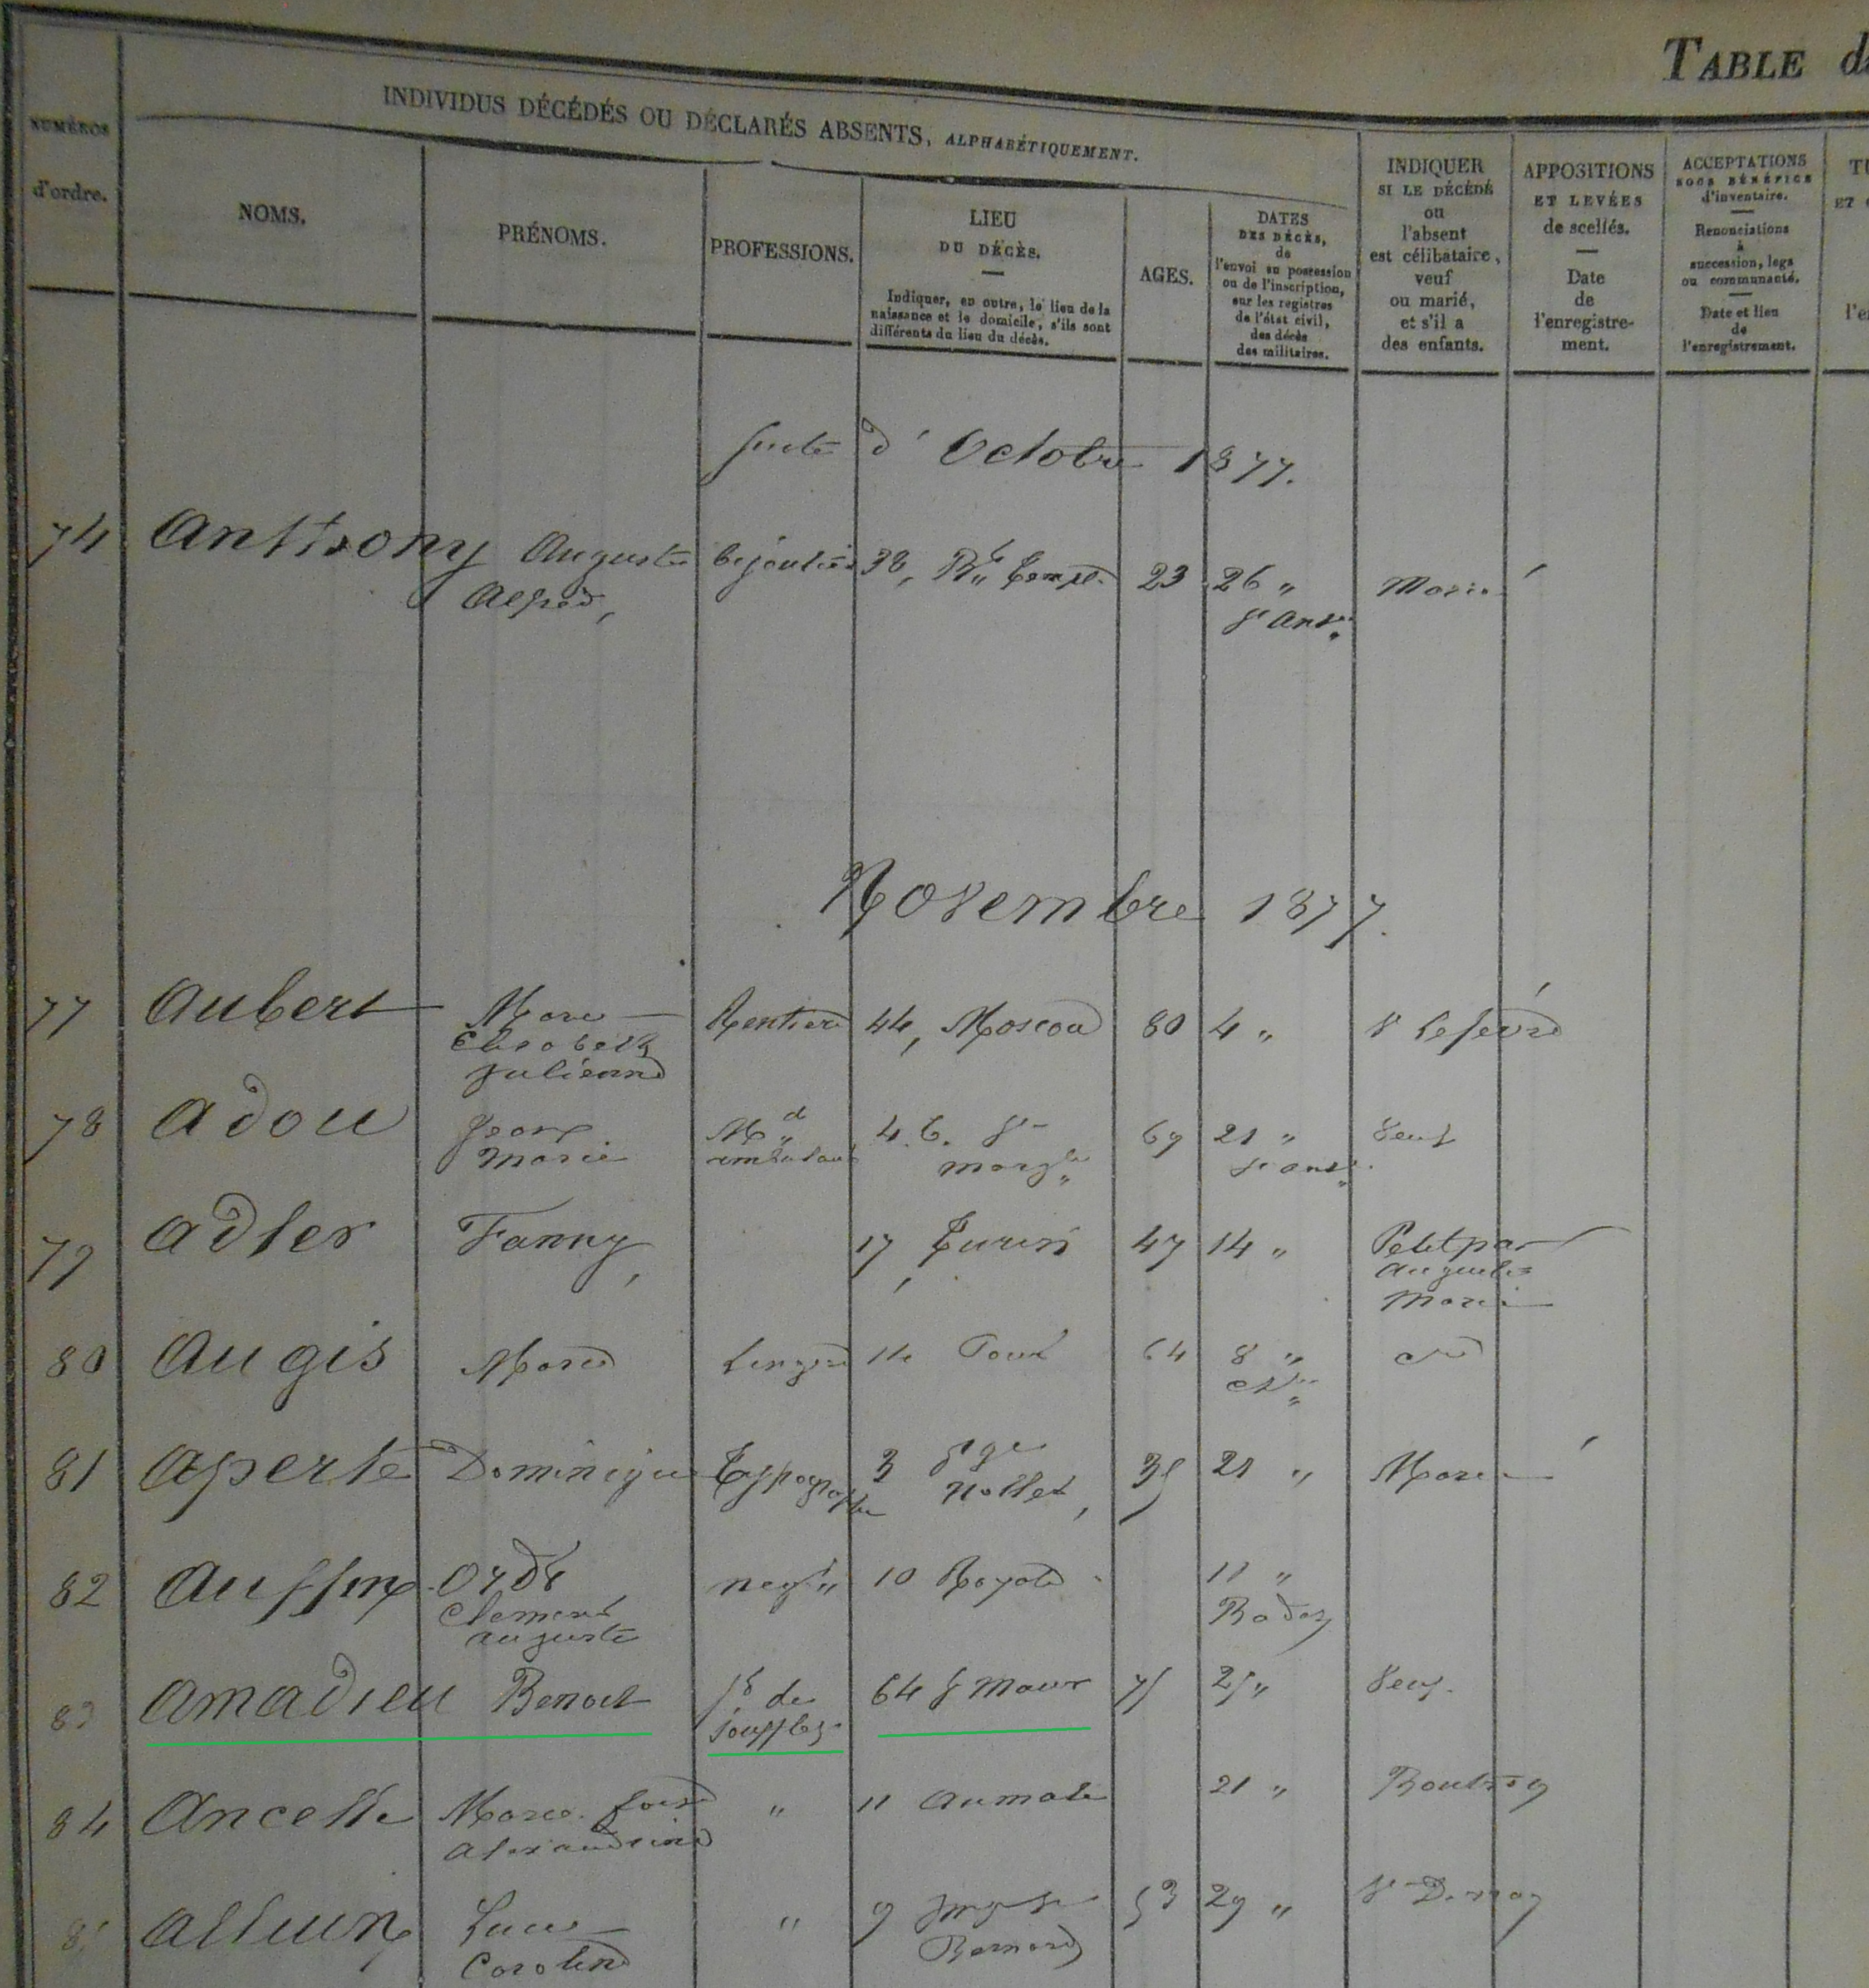 TABLE
INDIVIDUS DÉCÉDÉS OU DÉCLARÉS ABSENTS, ALPHABÉTIQUEMENT.
NUMÉROS
d'ordre.
NOMS.
PRÉNOMS.
PROFESSIONS.
LIEU
DU DÉCÈS.
Indiquer, en outre, le lieu de la
naissance et le domicile, s'ils sont
différents du lieu du décès.
AGES.
DATES
DES DÉCÈS,
de
l'envoi en possession
ou de l'inscription,
sur les registres
de l'état civil,
des décès
des militaires.
INDIQUER
SI LE DÉCÉDÉ
ou
l'absent
est célibataire,
veuf
ou marié,
et s'il a
des enfants.
APPOSITIONS
ET LEVÉES
de scellés.
Date
de
l'enregistre-
ment.
ACCEPTATIONS
SOUS BÉNÉFICE
d'inventaire.
Renonciations
à
succession, legs
ou communauté.
Date et lieu
de
l'enregistrement.
Suite d'Octobre 1877.
74 Anthony Auguste bijoutier 38, Bd Temple 23 26 " Marié
Alfred, St Ant.
Novembre 1877.
77 Aubert Marie Rentière 44, Moscou 80 4 " V Lefevre
Elisabeth
Julienne
78 Adou Jean Md 4. C. St 69 21 " Veuf
Marie ambulant Marg St Ant.
79 Adler Fanny, 17, Turin 47 14 " Petitpas
Auguste
Marie
80 Augis Marie Lingère 14 Port 64 8 "
81 Aperte Dominique Typographe 3 Sqe 35 21 " Marié
Nollet,
82 Auffin Clement negt " 10 Royale 11 "
auguste Rodez
83 Amadieu Benoit ft de 64 St Maur 75 25 " Veuf.
soufflets
84 Ancelle Marie " 11 Aumale 21 "
Alexandrine
Alleaume " 9 53 29 "
Caroline Bernard